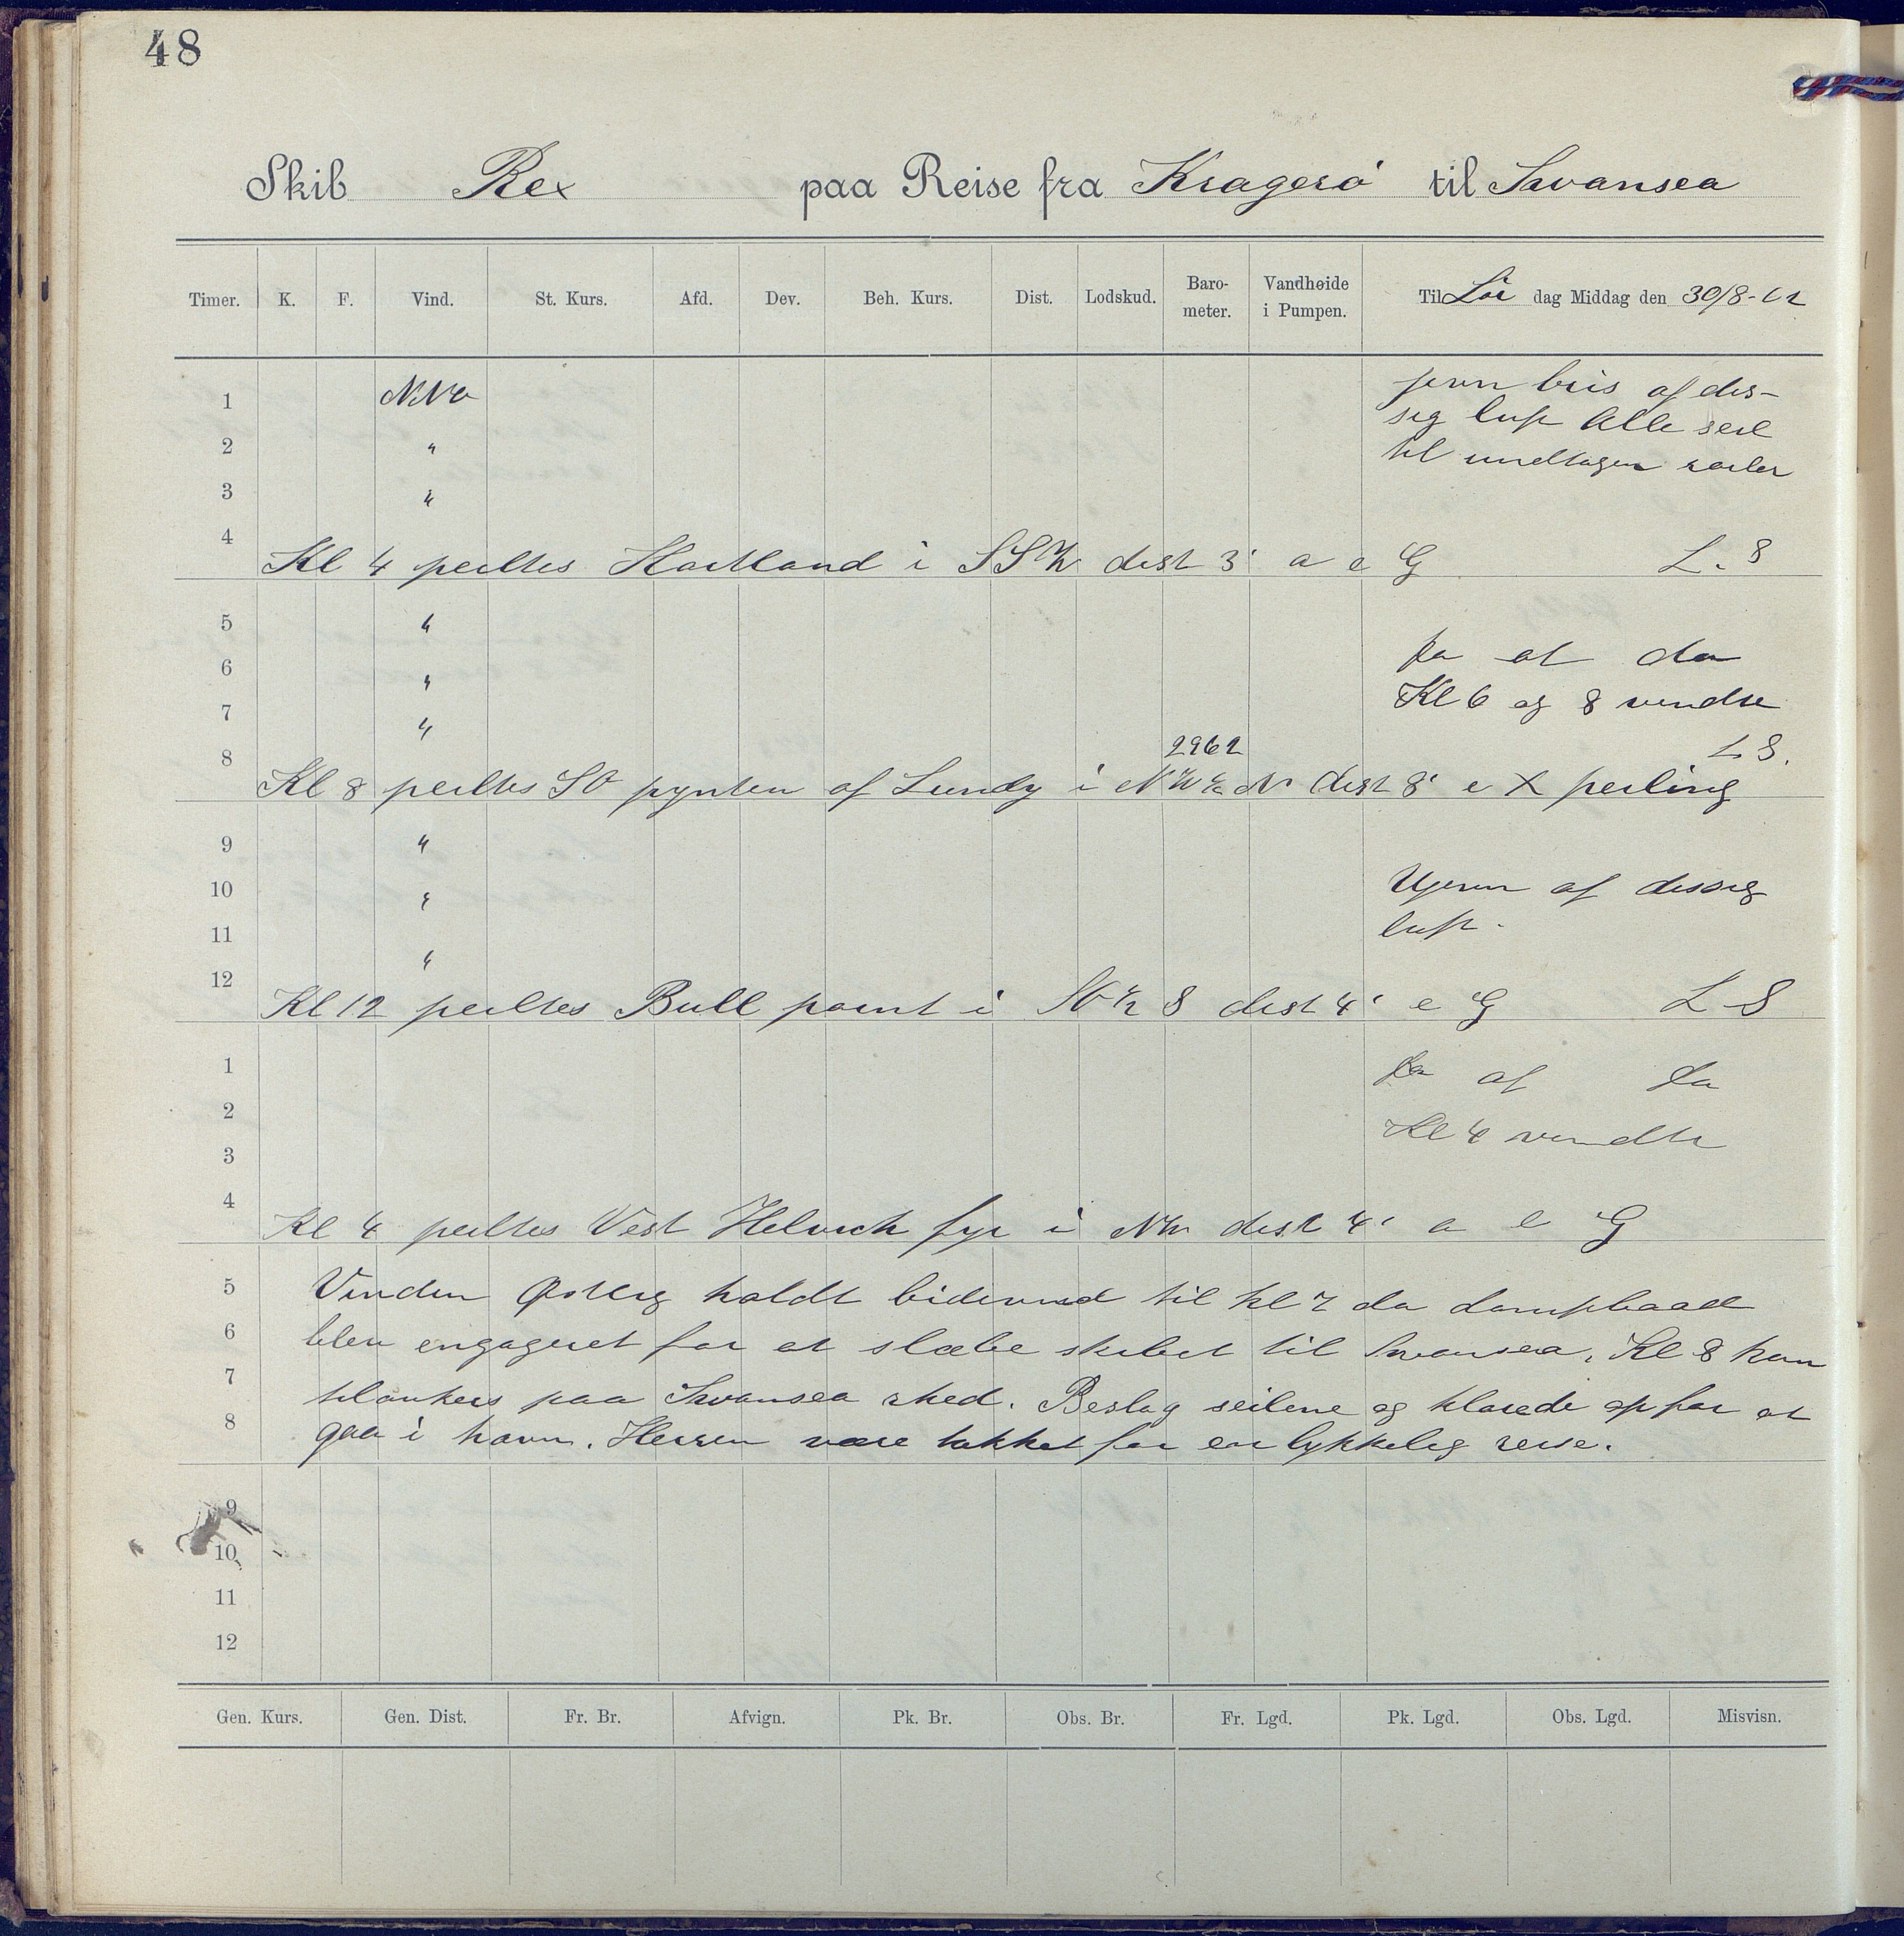 48
Skib Rex paa Reise fra Kragerö til Swansea
Timer. K. F. Vind. St. Kurs. Afd. Dev. Beh. Kurs. Dist. Lodskud. Baro-meter. Vandhøide i Pumpen. Til Lör dag Middag den 30/8-
1 NNO jevn bris af dis-
sig luft Alle seil
2 " til undtagen röiler
3 "
4 Kl 4 peiltes Hartland i dist 3' a e G L. 8
5 "
6 " da af da
7 " Kl 6 og 8 vendte
8 2962 L 8.
Kl 8 peiltes SO pynten af Lundy i dist 8' e X peiling
9 "
10 " Ujevn af dissig
11 " luft.
12 Kl 12 peiltes Bull point i SO ½ S dist 4' e G L 8
1 da af da
2 Kl 4 vendte
3
4 Kl 4 peiltes Vest Helwich fyr i NW dist 4' a e G
5 Vinden Østlig holdt bidevind til kl 7 da dampbaad
6 blev engageret for at slæbe skibet til Swansea, Kl 8 kom
7 tilankers paa Swansea rhed. Beslog seilene og klarede op for at
8 gaa i havn. Herren være takket for en lykkelig reise.
9
10
11
12
Gen. Kurs. Gen. Dist. Fr. Br. Afvign. Pk. Br. Obs. Br. Fr. Lgd. Pk. Lgd. Obs. Lgd. Misvisn.